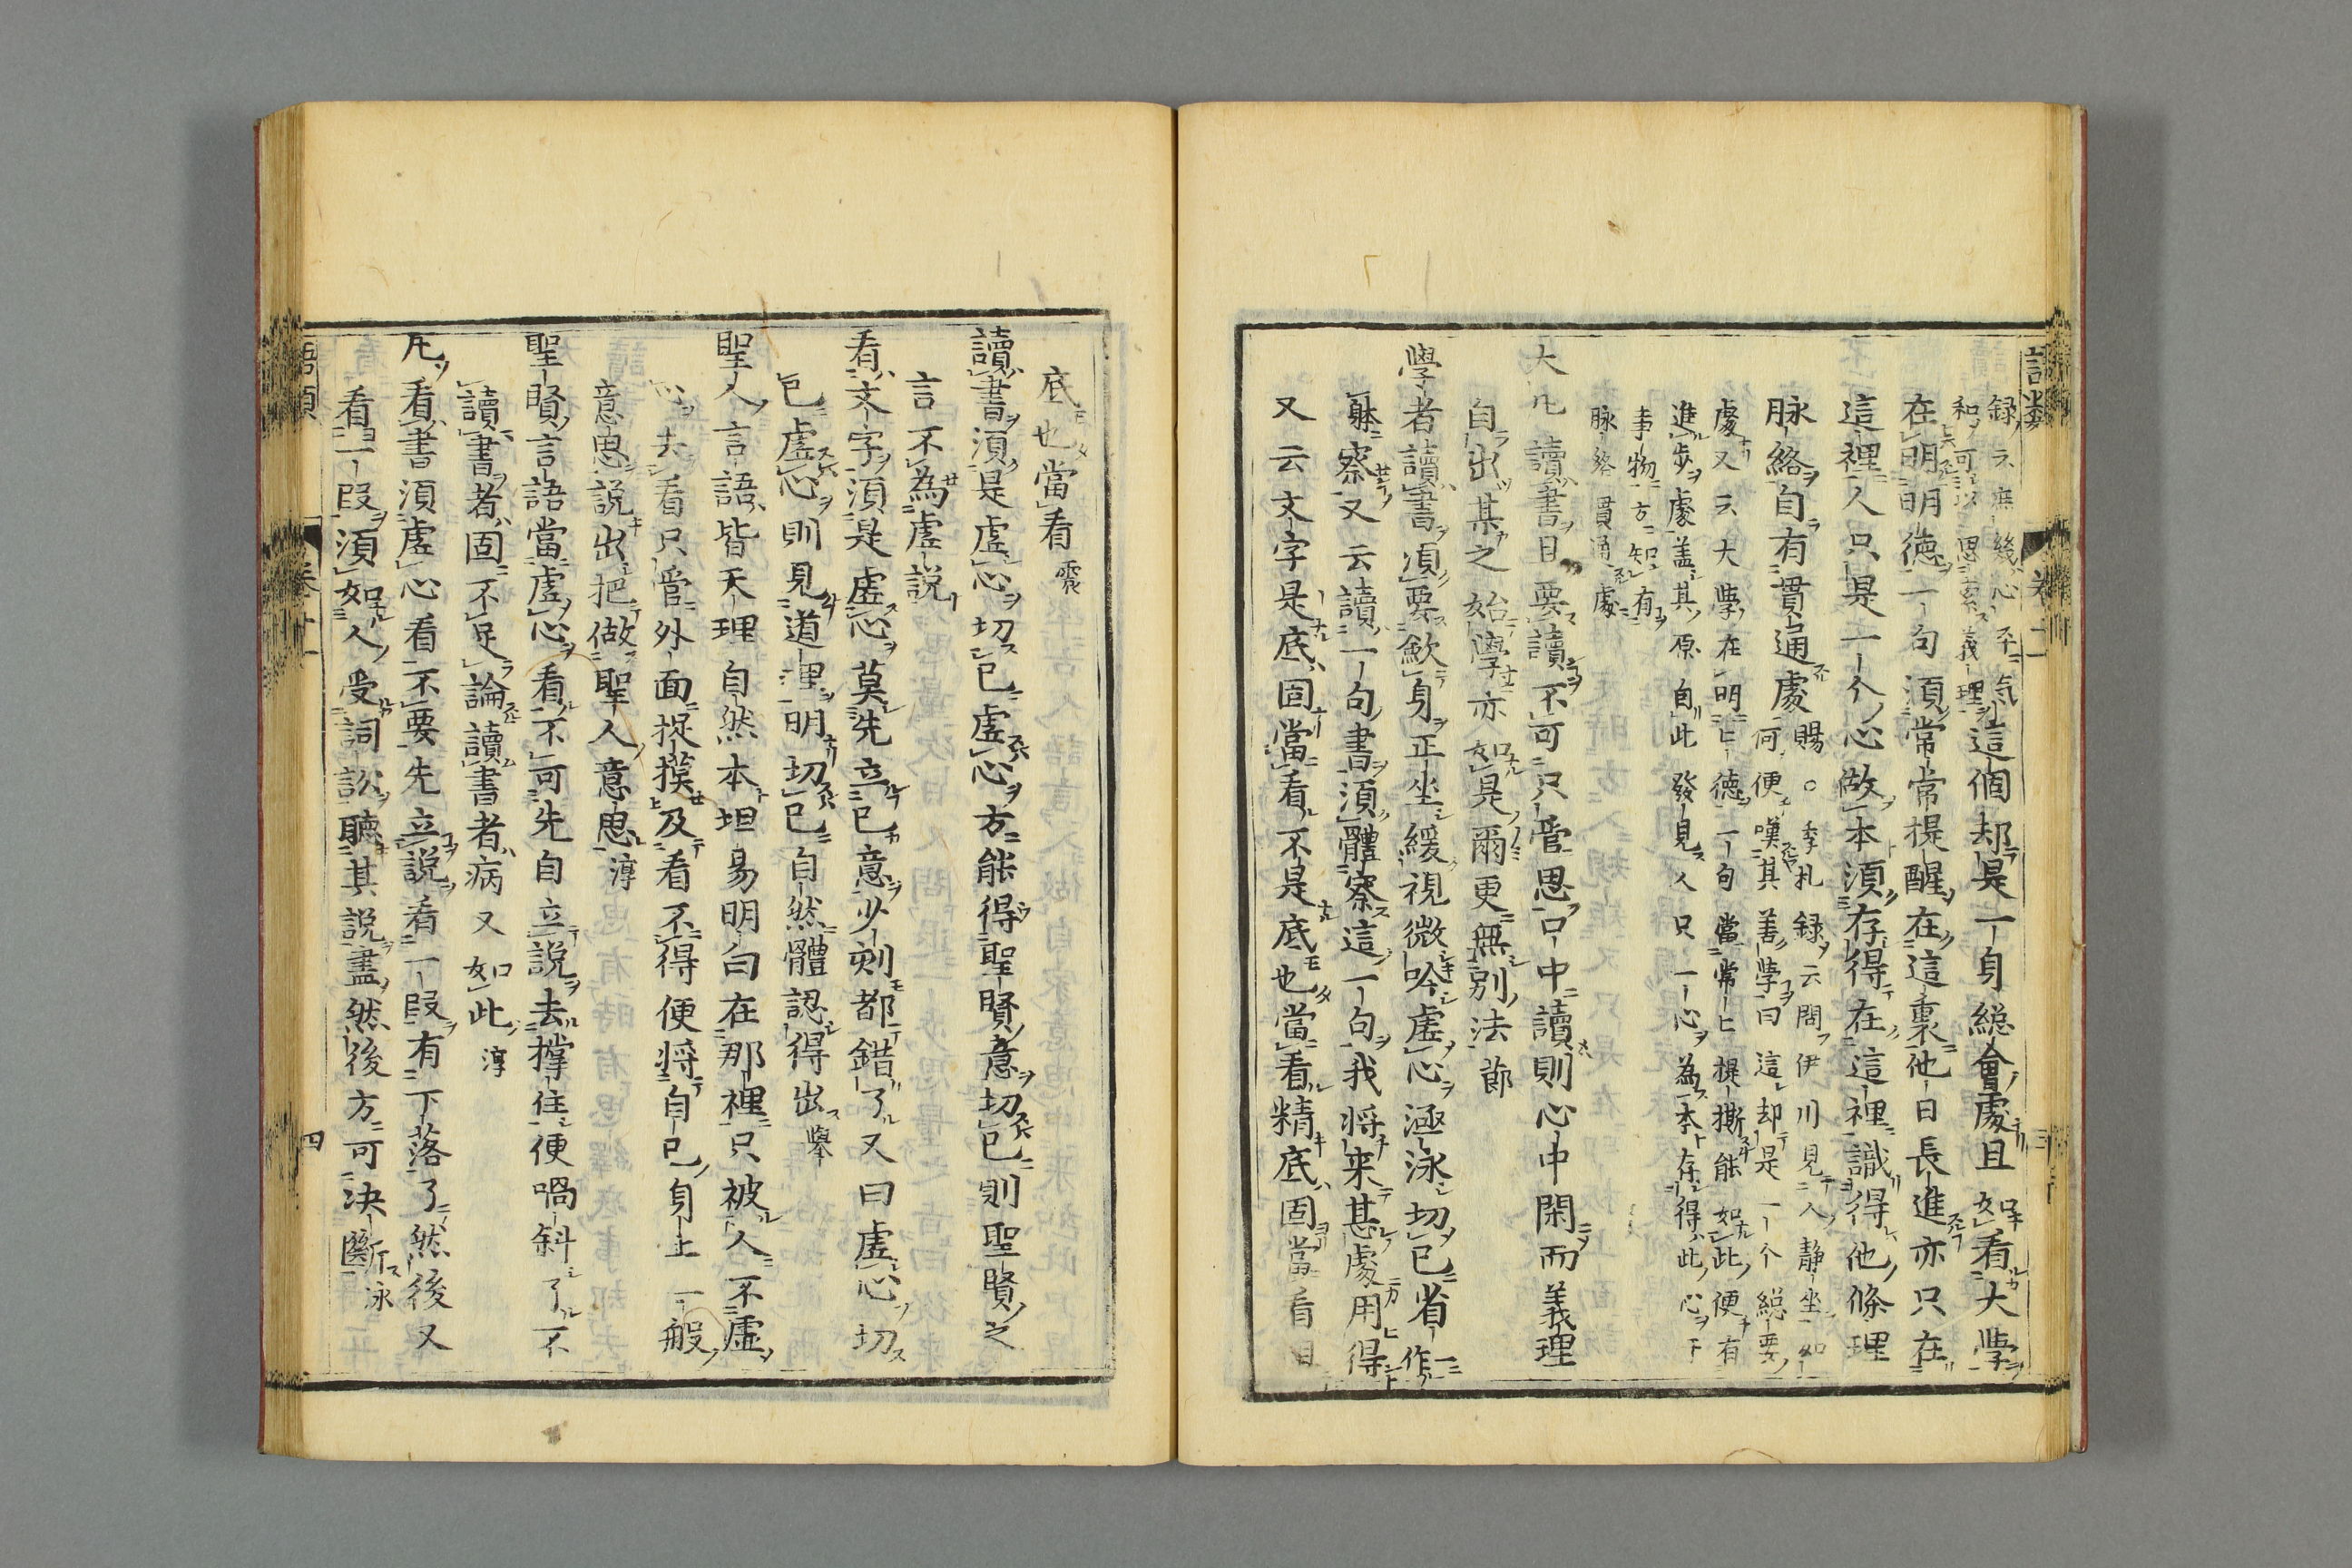 語類 卷十一 三
録云無幾心至氣
和可以思索義理 這個却是一身総會處且如看大學
在明明徳一句須常常提醒在這裏他日長進亦只在
這裡人只是一个心做本須存得在這裡識得他條理
脉絡自有貫通處 賜○季札録云問伊川見人静坐如
何便嘆其善學曰這却是一个総要
處又云大學在明ヒ徳一句當常ヒ提撕能如此便有
進歩處盖其原自此發見人只一心為本存得此心于
事物方知有
脉絡貫通處
大凡讀書且要讀不可只管思口中讀則心中閑而義理
自出某之始學亦如是爾更無別法 節
學者讀書須要歛身正坐緩視微吟虚心涵泳切己省作一
躰察又云讀一句書須體察這一句我将来甚處用得
又云文字是底固當看不是底也當看精底固當看粗
底也當看 震
讀書須是虚心切己虚心方能得聖賢意切己則聖賢之
言不為虚説
看文字須是虚心莫先立己意少刻都錯了又曰虚心切
己虚心則見道理明切己自然體認得出 舉
聖人言語皆天理自然本坦易明白在那裡只被人不虚
心去看只管外面捉摸及看不得便将自己身上一般
意思説出把做聖人意思 淳
聖賢言語當虚心看不可先自立説去撑住便喎斜了不
讀書者固不足論讀書者病又如此 淳
凡看書須虚心看不要先立説看一段有下落了然後又
看一段須如人受詞訟聽其説盡然後方可決斷 泳
語類 卷十一 四